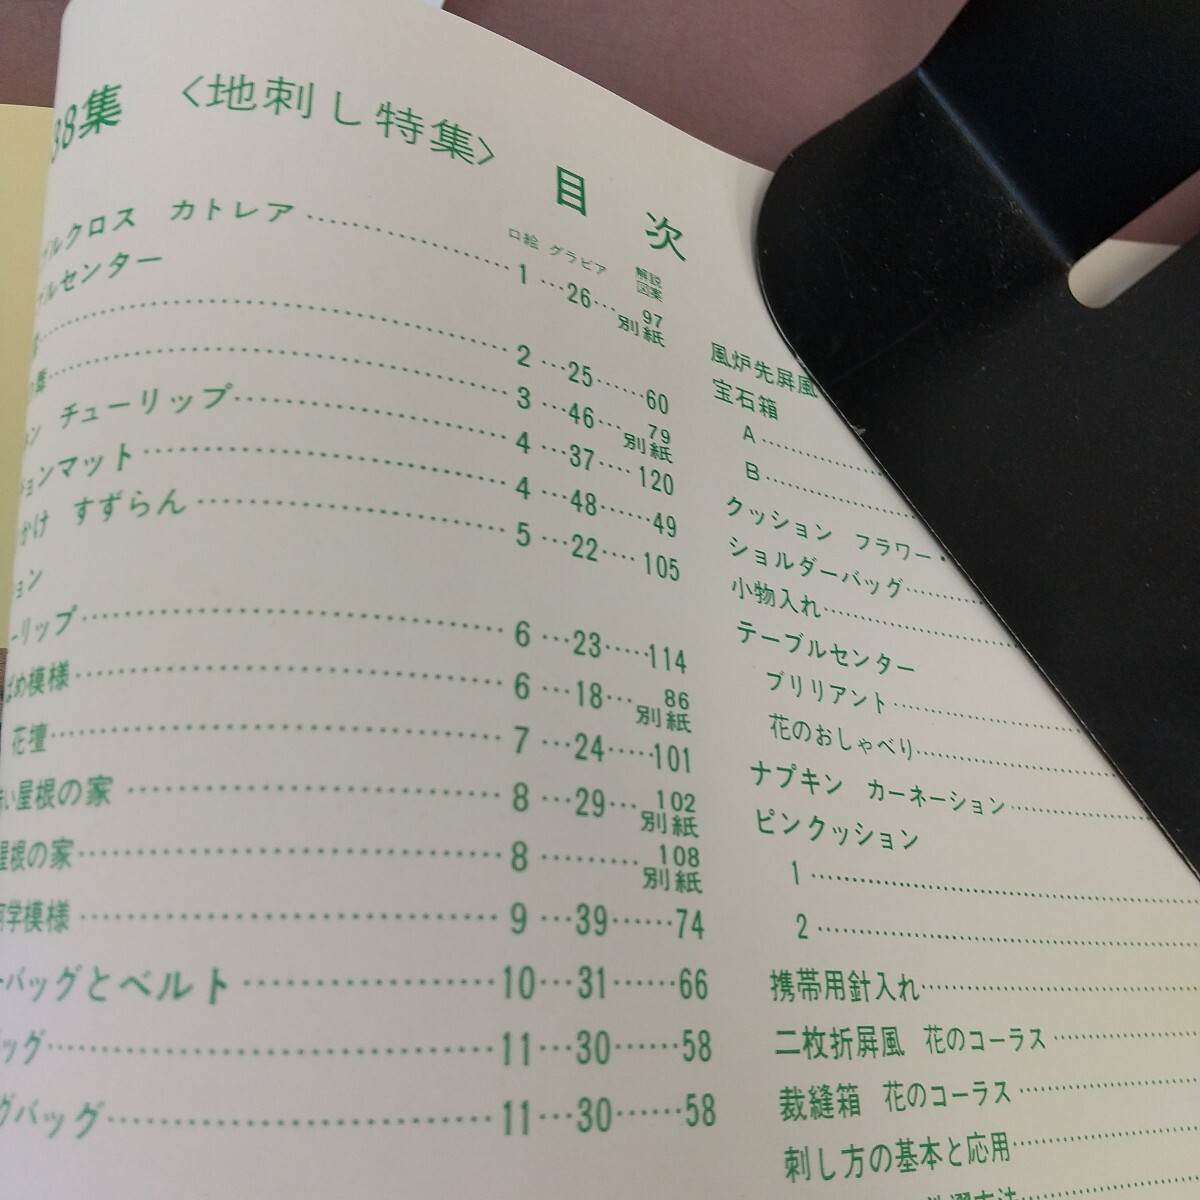 38集 〈地刺し特集〉 目次
口絵 グラビア 解説図案
ルクロス カトレア……1…26…97別紙
ルセンター
……2…25……60
……3…46…79別紙
ン チューリップ……4…37……120
ョンマット……4…48……49
かけ すずらん……5…22……105
ョン
ーリップ……6…23……114
ばめ模様……6…18…86別紙
花壇……7…24……101
い屋根の家……8…29…102別紙
屋根の家……8………108別紙
何学模様……9…39……74
ーバッグとベルト……10…31……66
ッグ……11…30……58
グバッグ……11…30……58
風炉先屏風
宝石箱
A……
B……
クッション フラワー・
ショルダーバッグ……
小物入れ……
テーブルセンター
ブリリアント……
花のおしゃべり……
ナプキン カーネーション……
ピンクッション
1……
2……
携帯用針入れ……
二枚折屏風 花のコーラス……
裁縫箱 花のコーラス……
刺し方の基本と応用……